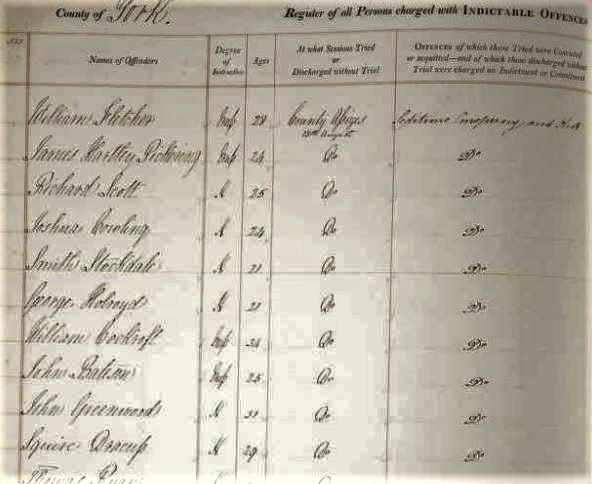 County of York. Register of all Persons charged with INDICTABLE OFFENCES
Names of Offenders
Degree of Instruction
Ages
At what Sessions Tried or Discharged without Trial
OFFENCES of which those Tried were Convicted
or acquitted—and of which those discharged without
Trial were charged on Indictment or Commitment
William Fletcher Imp County Assizes Seditious Conspiracy and
August
James Hartley Pickering Imp 24 Do Do
Richard Scott N 25 Do Do
Joshua Cowling N 24 Do Do
Smith Stockdale N 21 Do Do
George Holroyd N 21 Do Do
William Cockroft Imp Do Do
John Bateson Imp 25 Do Do
John Greenwood N 21 Do Do
Squire Dracup N 29 Do Do
Thomas